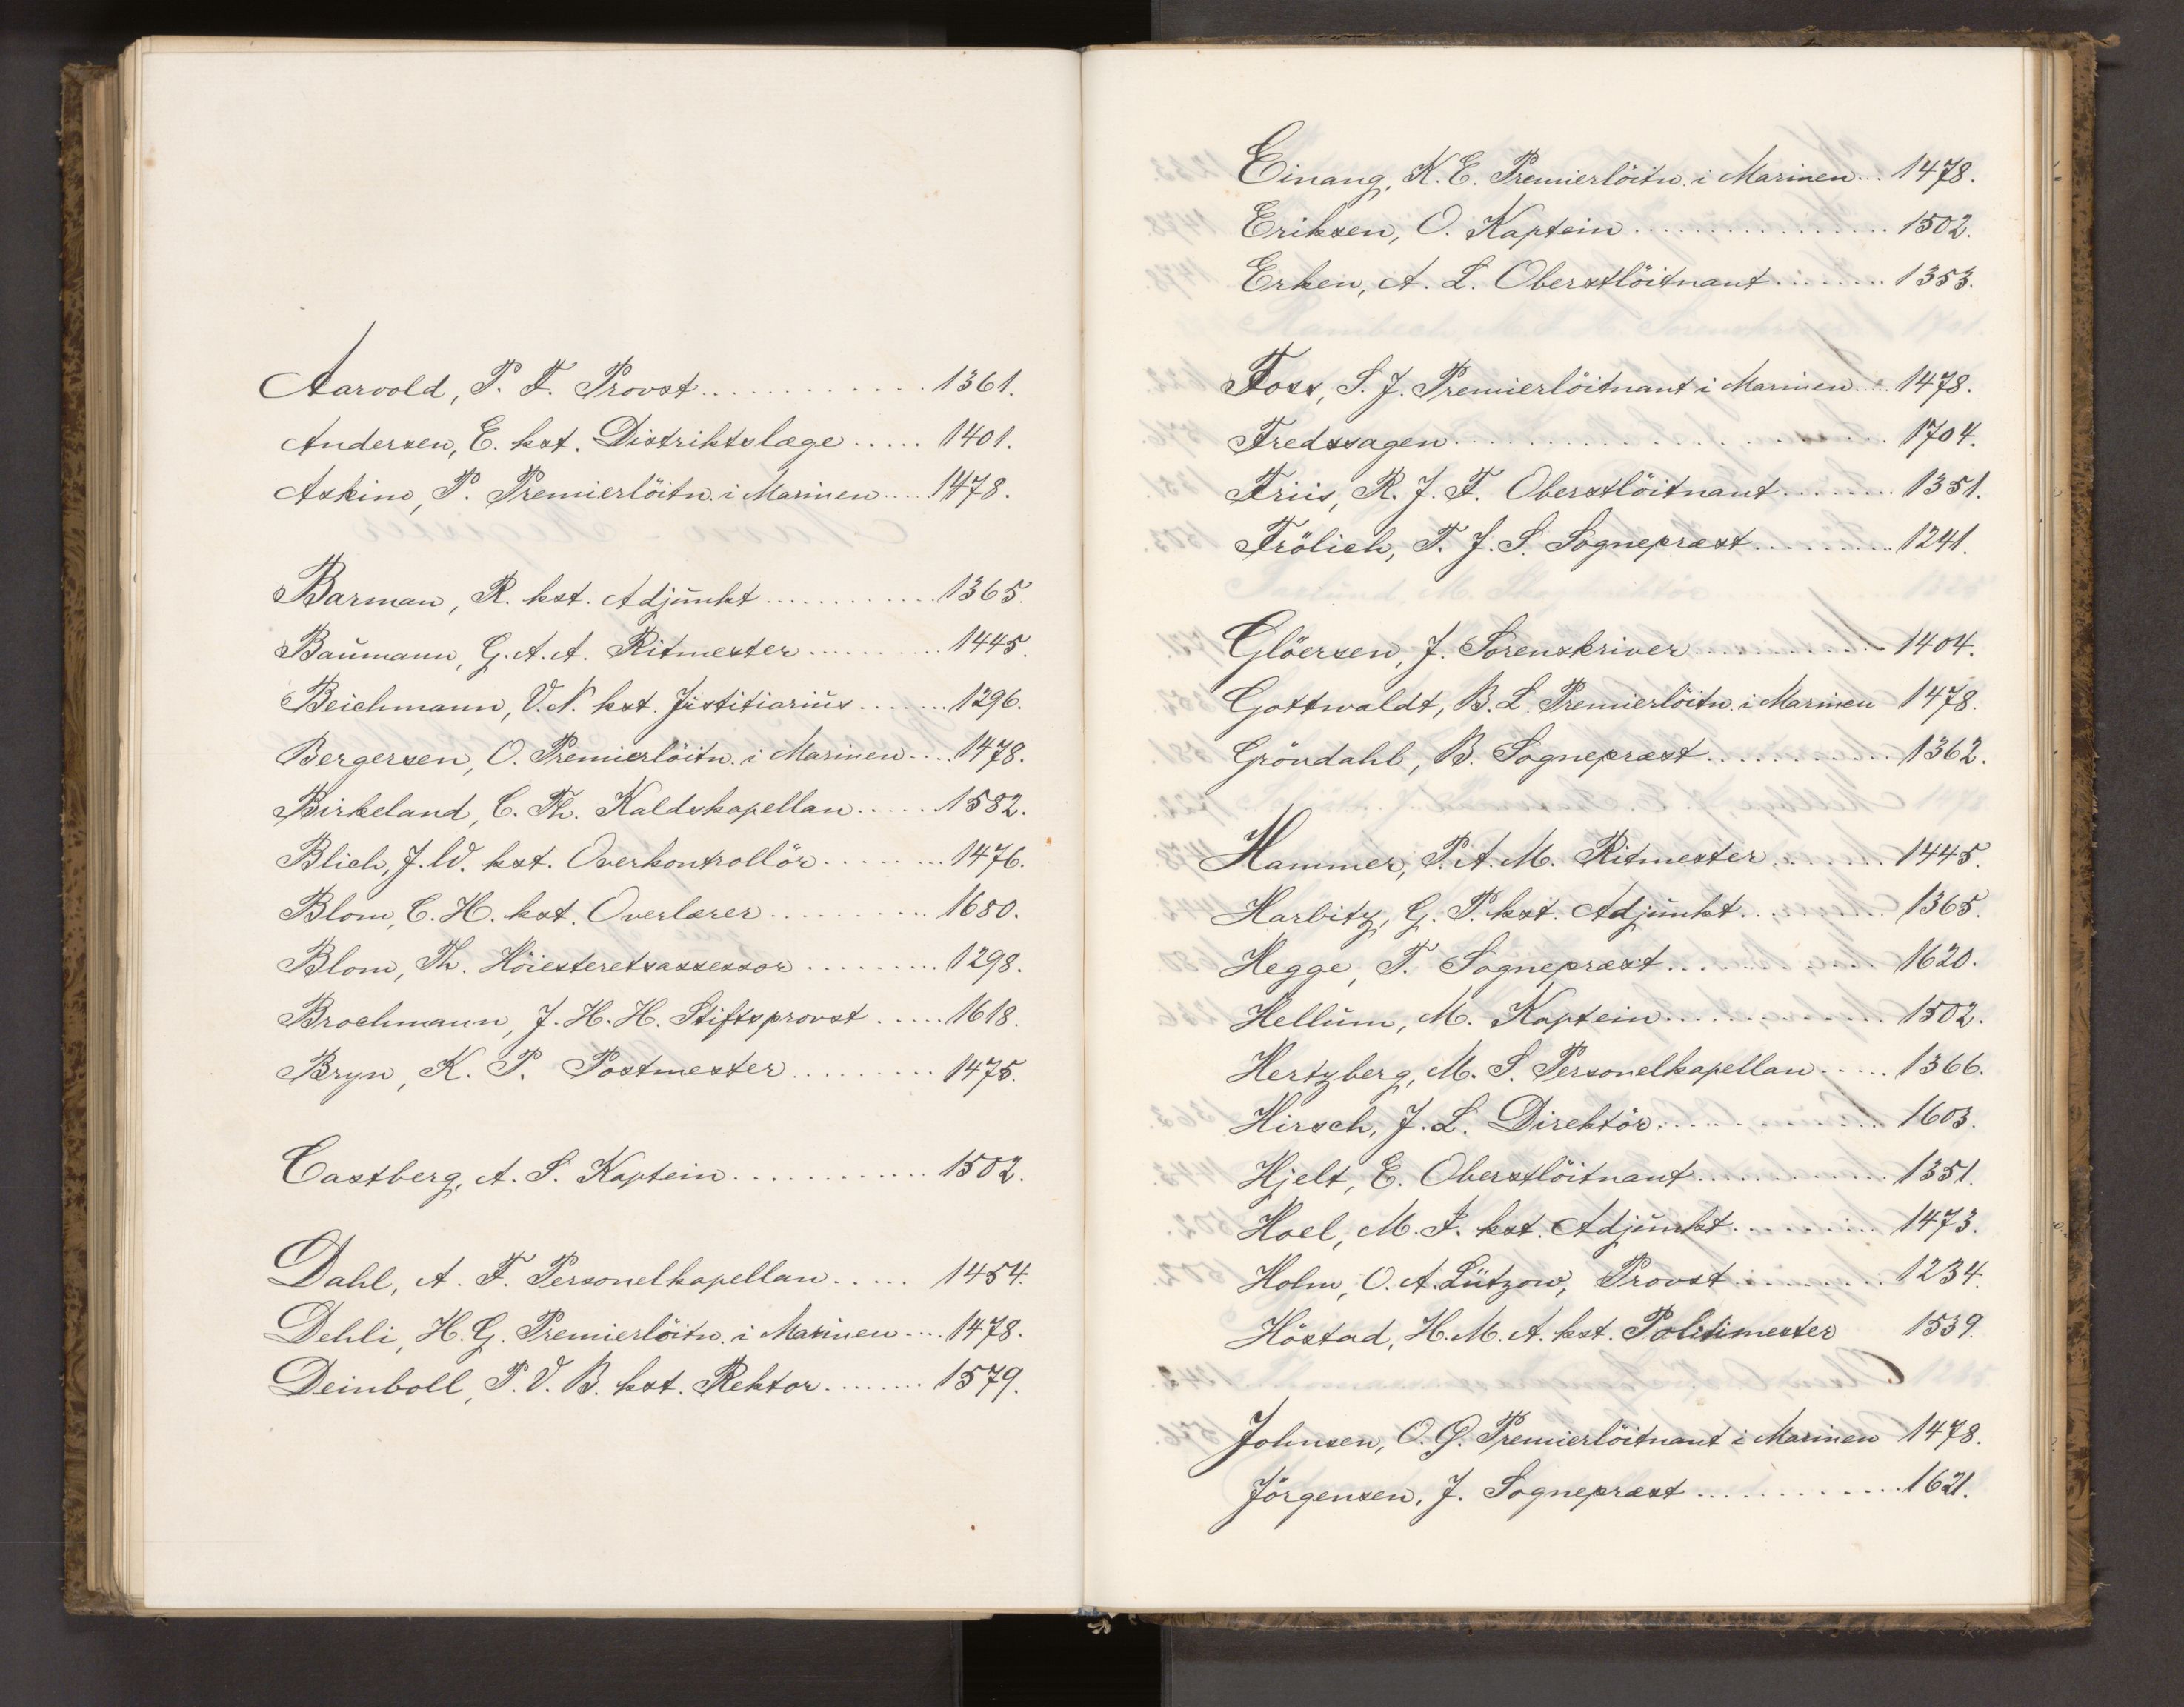 Aarvold, P. F. Provst ............ 1361.
Andersen, E. kst. Distriktslæge ..... 1401.
Askim, P. Premierlöitn. i Marinen .... 1478.
Barman, R. kst. Adjunkt ............ 1365.
Baumann, G. A. A. Ritmester .......... 1445.
Beichmann, V. N. kst. Justitiarius ....... 1296.
Bergersen, O. Premierlöitn. i Marinen .... 1478.
Birkeland, C. Th. Kaldskapellan ..... 1582.
Blich, J. W. kst. Overkontrollör ........ 1476.
Blom, C. H. kst. Overlærer .......... 1680.
Blom, Th. Höiesteretsassessor .......... 1298.
Brochmann, J. H. H. Stiftsprovst ..... 1618.
Bryn, K. P. Postmester ......... 1475.
Castberg, A. S. Kaptein ............ 1502.
Dahl, A. F. Personelkapellan ..... 1454.
Dehli, H. G. Premierlöitn. i Marinen .... 1478.
Deinboll, P. V. B. kst. Rektor ........ 1579.
Einang, K. E. Premierlöitn. i Marinen ... 1478.
Eriksen, O. Kaptein ................ 1502.
Erken, A. L. Oberstlöitnant ........ 1353.
Foss, S. J. Premierlöitnant i Marinen .... 1478.
Fredssagen ..................... 1704.
Friis, R. J. F. Oberstlöitnant ........ 1351.
Frölich, T. J. S. Sognepræst .......... 1241.
Glöersen, J. Sorenskriver ............ 1404.
Gottwaldt, B. L. Premierlöitn. i Marinen 1478.
Gröndahl, B. Sognepræst ............ 1362.
Hammer, P. A. M. Ritmester ....... 1445.
Harbitz, G. P. kst. Adjunkt .......... 1365.
Hegge, T. Sognepræst .............. 1620.
Hellum, M. Kaptein .............. 1502.
Hertzberg, M. S. Personelkapellan ..... 1366.
Hirsch, J. L. Direktör .............. 1603.
Hjelt, E. Oberstlöitnant ............ 1351.
Hoel, M. F. kst. Adjunkt .......... 1473.
Holm, O. A. Lützow, Provst ......... 1234.
Höstad, H. M. A. kst. Politimester 1539.
Johnsen, O. G. Premierlöitnant i Marinen 1478.
Jörgensen, J. Sognepræst ............ 1621.